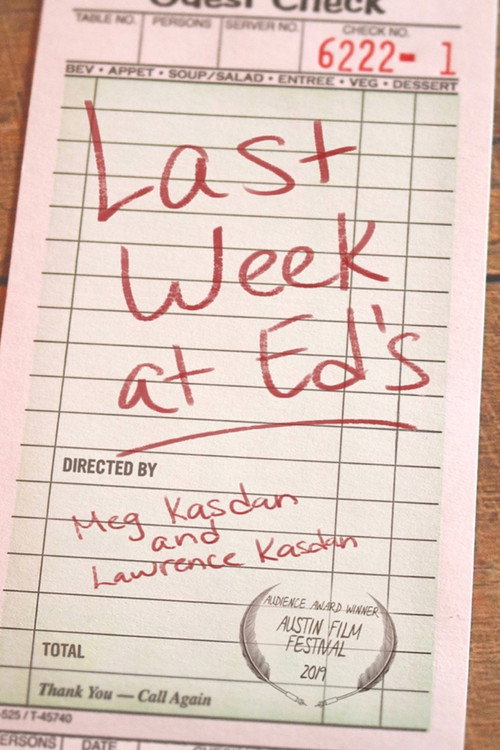 Guest Check
TABLE NO. PERSONS SERVER NO. CHECK NO.
6222- 1
BEV • APPET • SOUP/SALAD • ENTREE • VEG • DESSERT
Last
Week
at Ed's
DIRECTED BY
Meg Kasdan
and
Lawrence Kasdan
AUDIENCE AWARD WINNER
AUSTIN FILM
FESTIVAL
2019
TOTAL
Thank You — Call Again
525 / T-45740
PERSONS DATE